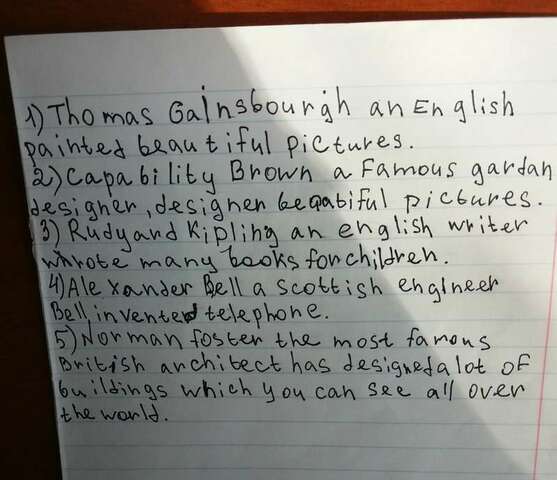 1) Thomas Gainsbourgh an English
painted beautiful pictures.
2) Capability Brown a famous gardan
designer, designer beaatiful pictures.
3) Rudyard Kipling an english writer
whrote many books for children.
4) Alexander Bell a scottish engineer
Bell invented telephone.
5) Norman foster the most famous
British architect has designed a lot of
buildings which you can see all over
the world.